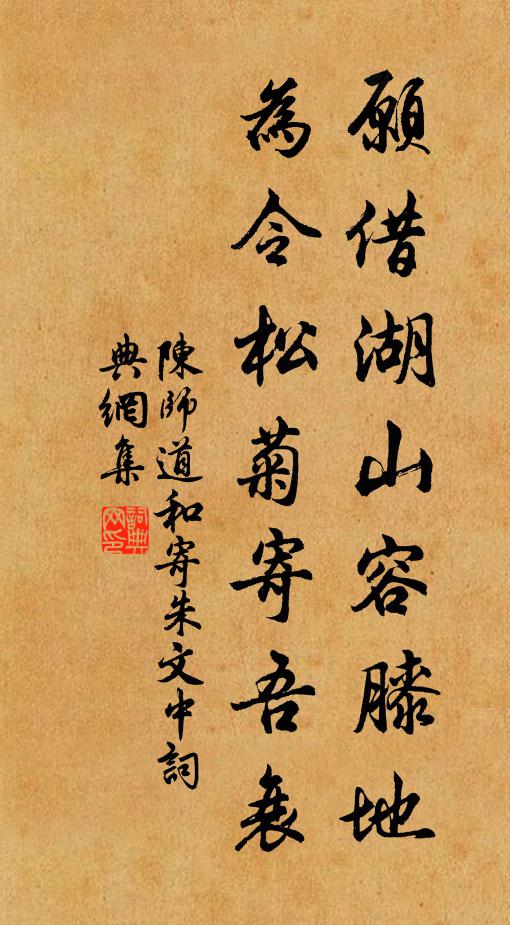 願借湖山容膝地
為令松菊寄吾衰
陳師道和寄朱文中詞
典網集
詞典網印